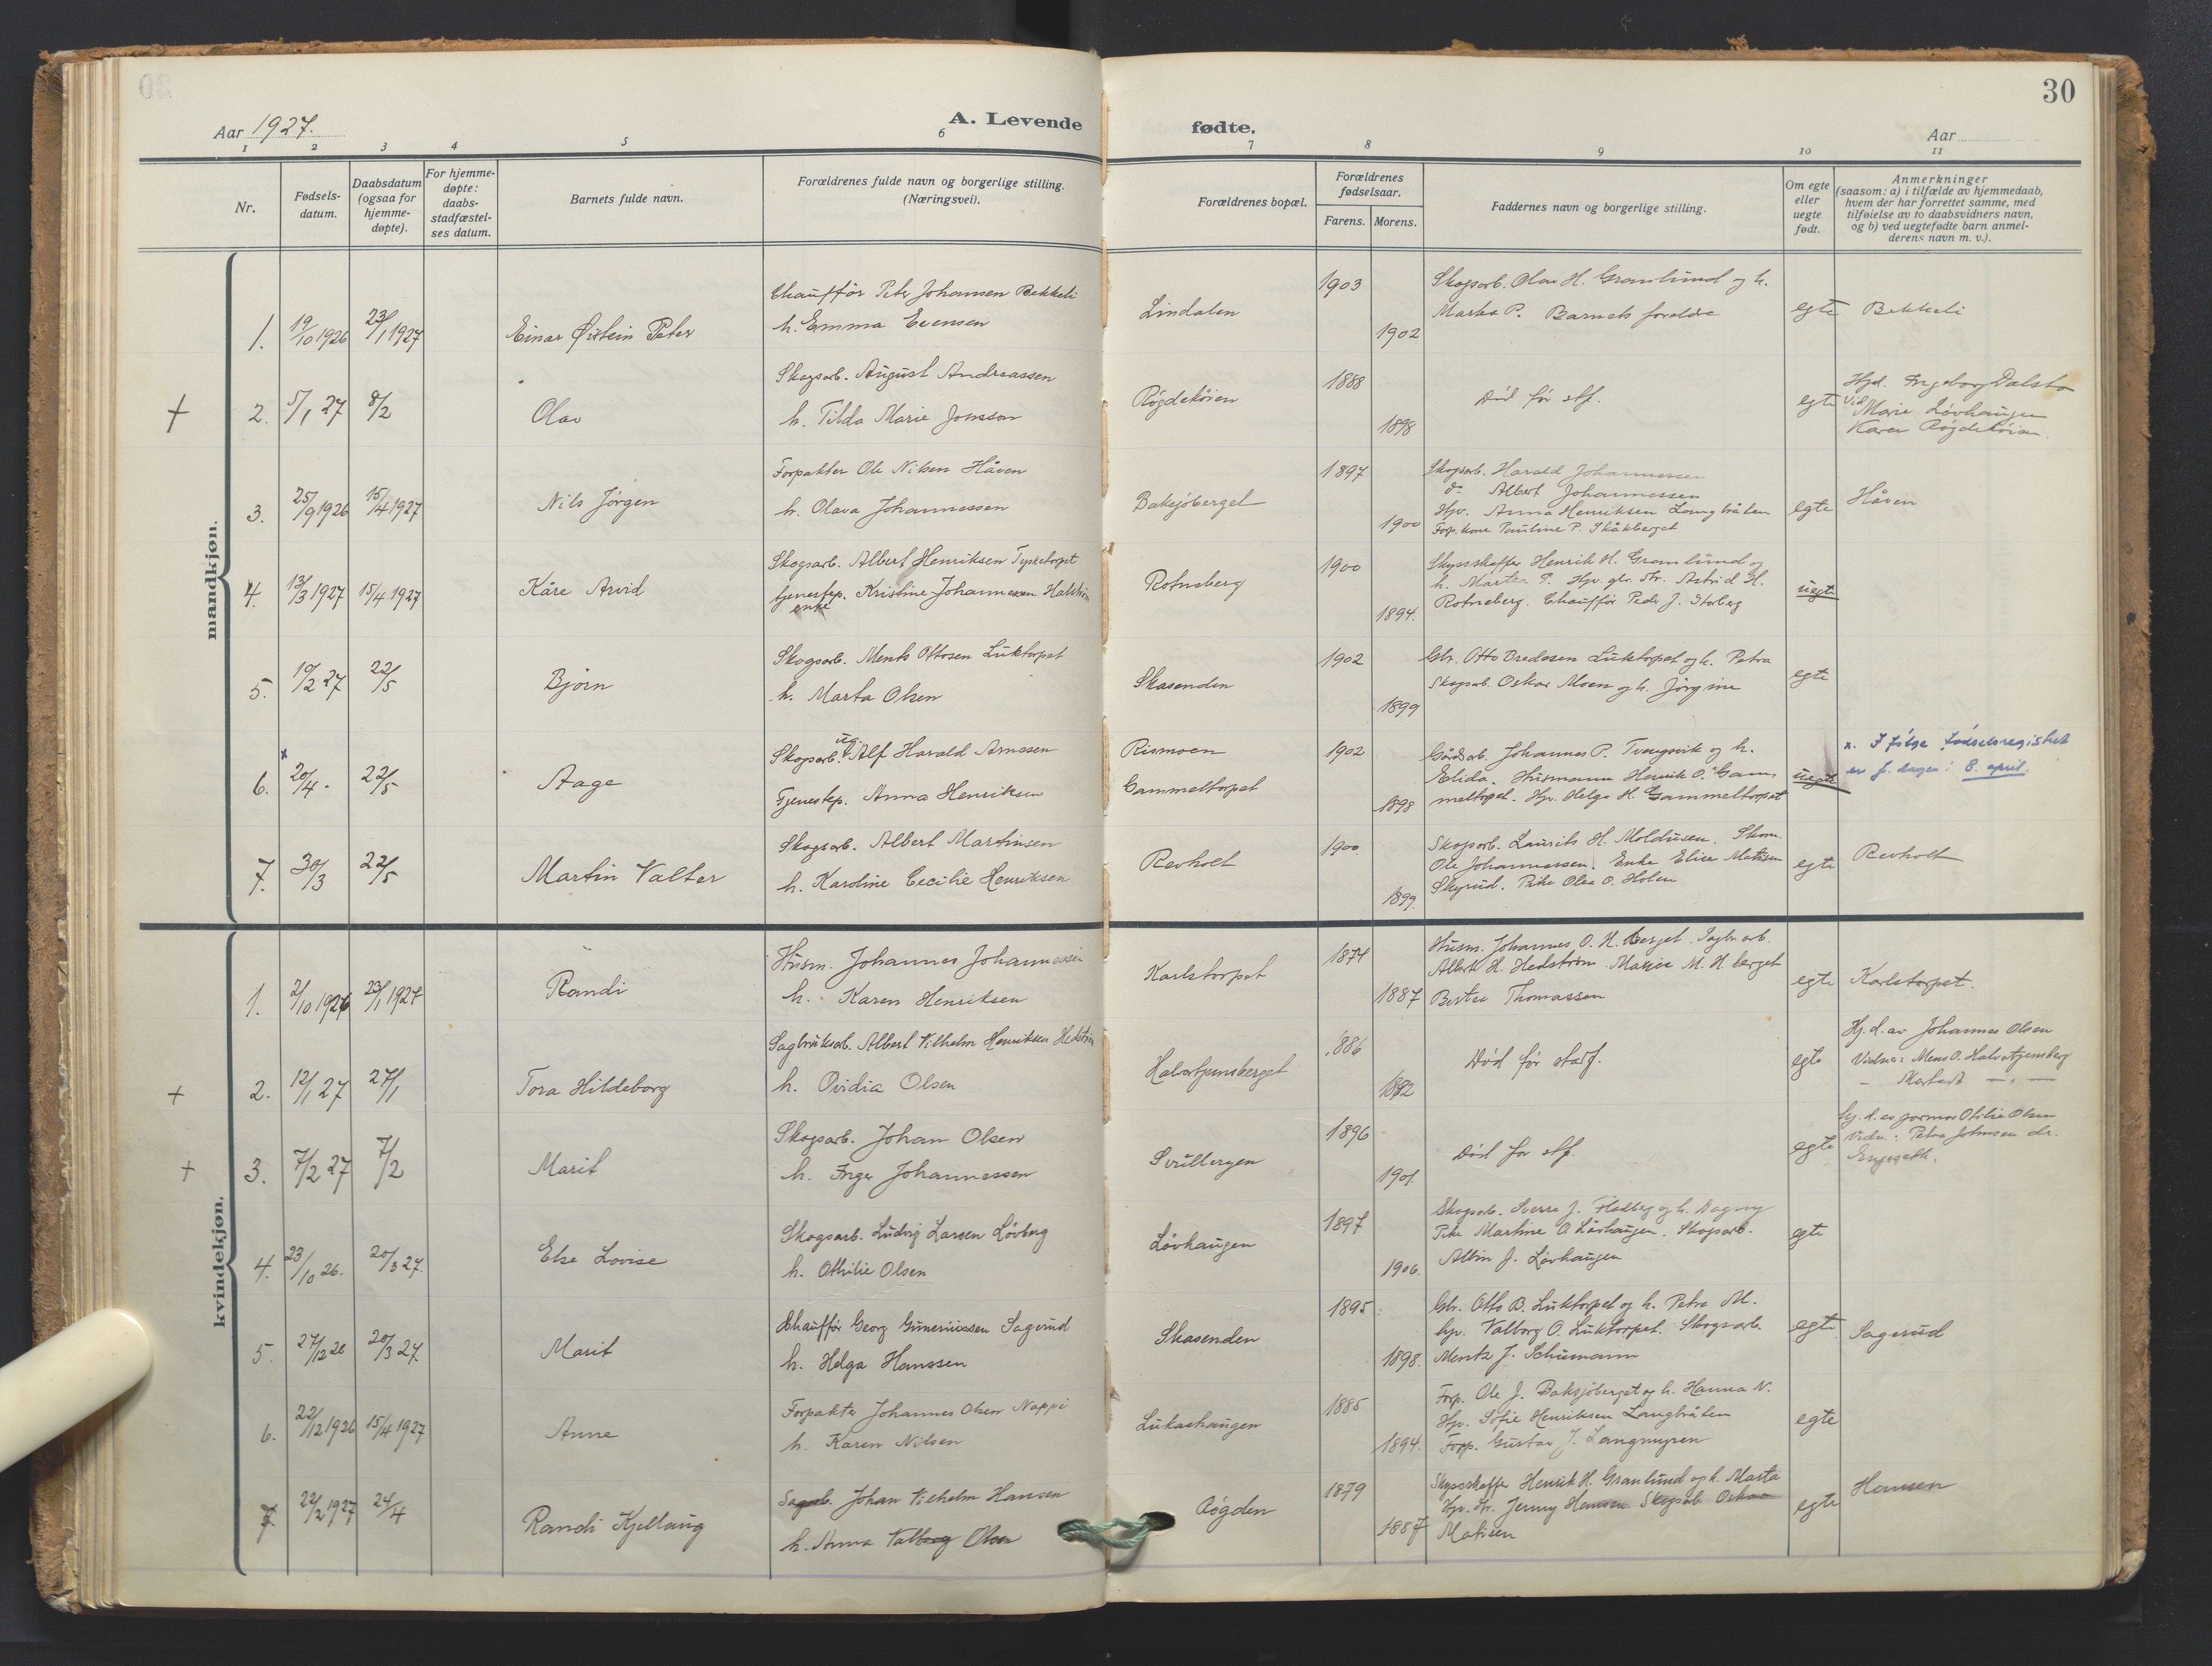 30
Aar 1927.
A. Levende fødte.
Aar
1 2 3 4 5 6 7 8 9 10 11
Nr.
Fødsels-
datum.
Daabsdatum
(ogsaa for
hjemme-
døpte).
For hjemme-
døpte:
daabs-
stadfæstel-
ses datum.
Barnets fulde navn.
Forældrenes fulde navn og borgerlige stilling.
(Næringsvei).
Forældrenes bopæl.
Forældrenes
fødselsaar.
Farens. Morens.
Faddernes navn og borgerlige stilling.
Om egte
eller
uegte
født.
Anmerkninger
(saasom: a) i tilfælde av hjemmedaab,
hvem der har forrettet samme, med
tilføielse av to daabsvidners navn,
og b) ved uegtefødte barn anmel-
derens navn m. v.).
mandkjøn.
1. 19/10 1926 23/1 1927 Einar Øistein Peter
Chauffør Peter Johansen Bekkeli
h. Emma Evensen
Lindalen
1903
1902
Skogsarb. Olav H. Granlund og h.
Marta P. Barnets foreldre
egte
Bekkeli
+ 2. 5/1 27 8/2 Olav
Skogsarb. August Andreassen
h. Tilda Marie Jonsson
Røgdekøien
1888
1898
Død før stf.
egte
Hjd. Ingeborg Dalsto
Vid Marie Løvhaugen
Karen Røgdekøien.
3. 25/9 1926 15/4 1927 Nils Jørgen
Forpakter Ole Nilsen Håven
h. Olava Johannessen
Baksjøberget
1897
1900
Skogsarb. Harald Johannessen
do Albert Johannessen
Hjv. Anna Henriksen Langbråten
Forp. kone Pauline P. Skåkberget
egte
Håven
4. 13/3 1927 15/4 1927 Kåre Arvid
Skogsarb. Albert Henriksen Tysketorpet
tjenestep. Kristine Johannessen Halström
enke
Rotneberg
1900
1894.
Skyssskaffer Henrik H. Granlund og
h. Martea P. Hjv. gbr. dtr. Astrid H.
Rotneberg. Chauffør Peder J. Storberg
uegte
5. 10/2 27 22/5 Bjørn
Skogsarb. Ments Ottosen Luktorpet
h. Marta Olsen
Skasenden
1902
1899
Gbr. Otto Bredesen Luktorpet og h. Petra
Skogsarb. Oskar Moen og h. Jørgine
egte
6. x 20/4 - 22/5 Aage
ug.
Skogsarb. Alf Harald Arnesen
Tjenestep. Anna Henriksen
Rismoen
Gammeltorpet
1902
1898
Gårdsarb. Johannes P. Tvengsvik og h.
Elida. Husmann Henrik O. Gam-
meltorpet. Hjv. Helga H. Gammeltorpet
uegte
x. Ifølge fødselsregistret
er f. dagen: 8. april.
7. 30/3 22/5 Martin Valter
Skogsarb. Albert Martinsen
h. Karoline Cecilie Henriksen
Revholt
1900
1899.
Skogsarb. Laurits H. Moldusen. Skom.
Ole Johannessen. Enke Elise Mathisen
Skyrud. Pike Olea O. Holen
egte
Revholt
kvindekjøn.
1. 2/10 1926 23/1 1927 Randi
Husm. Johannes Johannessen
h. Karen Henriksen
Karlstorpet
1874
1887
Husm. Johannes O. H. berget. Sagbr. arb.
Albert H. Hedström. Marie M. H. berget
Bertea Thomassen
egte
Karlstorpet.
+ 2. 12/1 27 27/1 Tora Hildeborg
Sagbruksarb. Albert Vilhelm Henriksen Hedström
h. Ovidia Olsen
Halvortjernsberget
1886
1892
Død før stadf.
egte
Hj. d. av Johannes Olsen
Vidner: Mons O. Halvortjernsberg
+ 3. 7/2 27 7/2 Marit
Skogsarb. Johan Olsen
h. Inger Johannessen
Svulleryen
1896
1901.
Død før stf.
egte
hj. d. av jormor Otilie Olsen
Vidn.: Petra Johnsen do.
4. 23/10 26. 20/3 27. Else Lovise
Skogsarb. Ludvig Larsen Løvberg
h. Othilie Olsen
Løvhaugen
1897
1906.
Skogsarb. Sverre J. Flatberg og h. Dagny
Pike Martine O. Løvhaugen. Skogsarb.
Albin J. Løvhaugen
egte
5. 27/12 26 20/3 27. Marit
Chauffør Georg Guneriussen Sagerud
h. Helga Hanssen
Skasenden
1895
1898.
Gbr. Otto B. Luktorpet og h. Petra M.
hjv. Valborg O. Luktorpet. Skogsarb.
Mentz J. Schumann
egte
Sagerud
6. 22/12 1926 15/4 1927 Anne
Forpakter Johannes Olsen Nappi
h. Karen Nilsen
Lukashaugen
1885
1894.
Forp. Ole J. Baksjøberget og h. Hanna N.
Hjv. Sofie Henriksen Langbråten
Forp. Gustav J. Langmyren
egte
7. 22/2 1927 24/4 Randi Kjellaug
Sagarb. Johan Vilhelm Hansen
h. Anna Valborg Olsen
Røgden
1879
1887
Skyssskaffer Henrik H. Granlund og h. Marta
Hjv. fr. Jenny Hansen Skogsarb. Oskar
Matisen
egte
Hansen